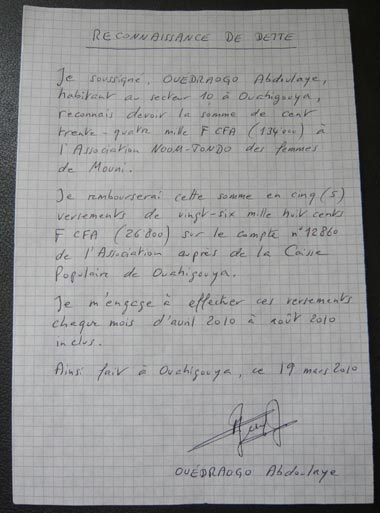 RECONNAISSANCE DE DETTE
Je soussigné, OUEDRAOGO Abdoulaye,
habitant au secteur 10 à Ouahigouya,
reconnais devoir la somme de cent
trente-quatre mille F CFA (134'000) à
l'Association NOOM-TONDO des femmes
de Mouni.
Je rembourserai cette somme en cinq (5)
versements de vingt-six mille huit cents
F CFA (26 800) sur le compte n° 12860
de l'Association auprès de la Caisse
Populaire de Ouahigouya.
Je m'engage à effectuer ces versements
chaque mois d'avril 2010 à août 2010
inclus.
Ainsi fait à Ouahigouya, ce 19 mars 2010
OUÉDRAOGO Abdoulaye